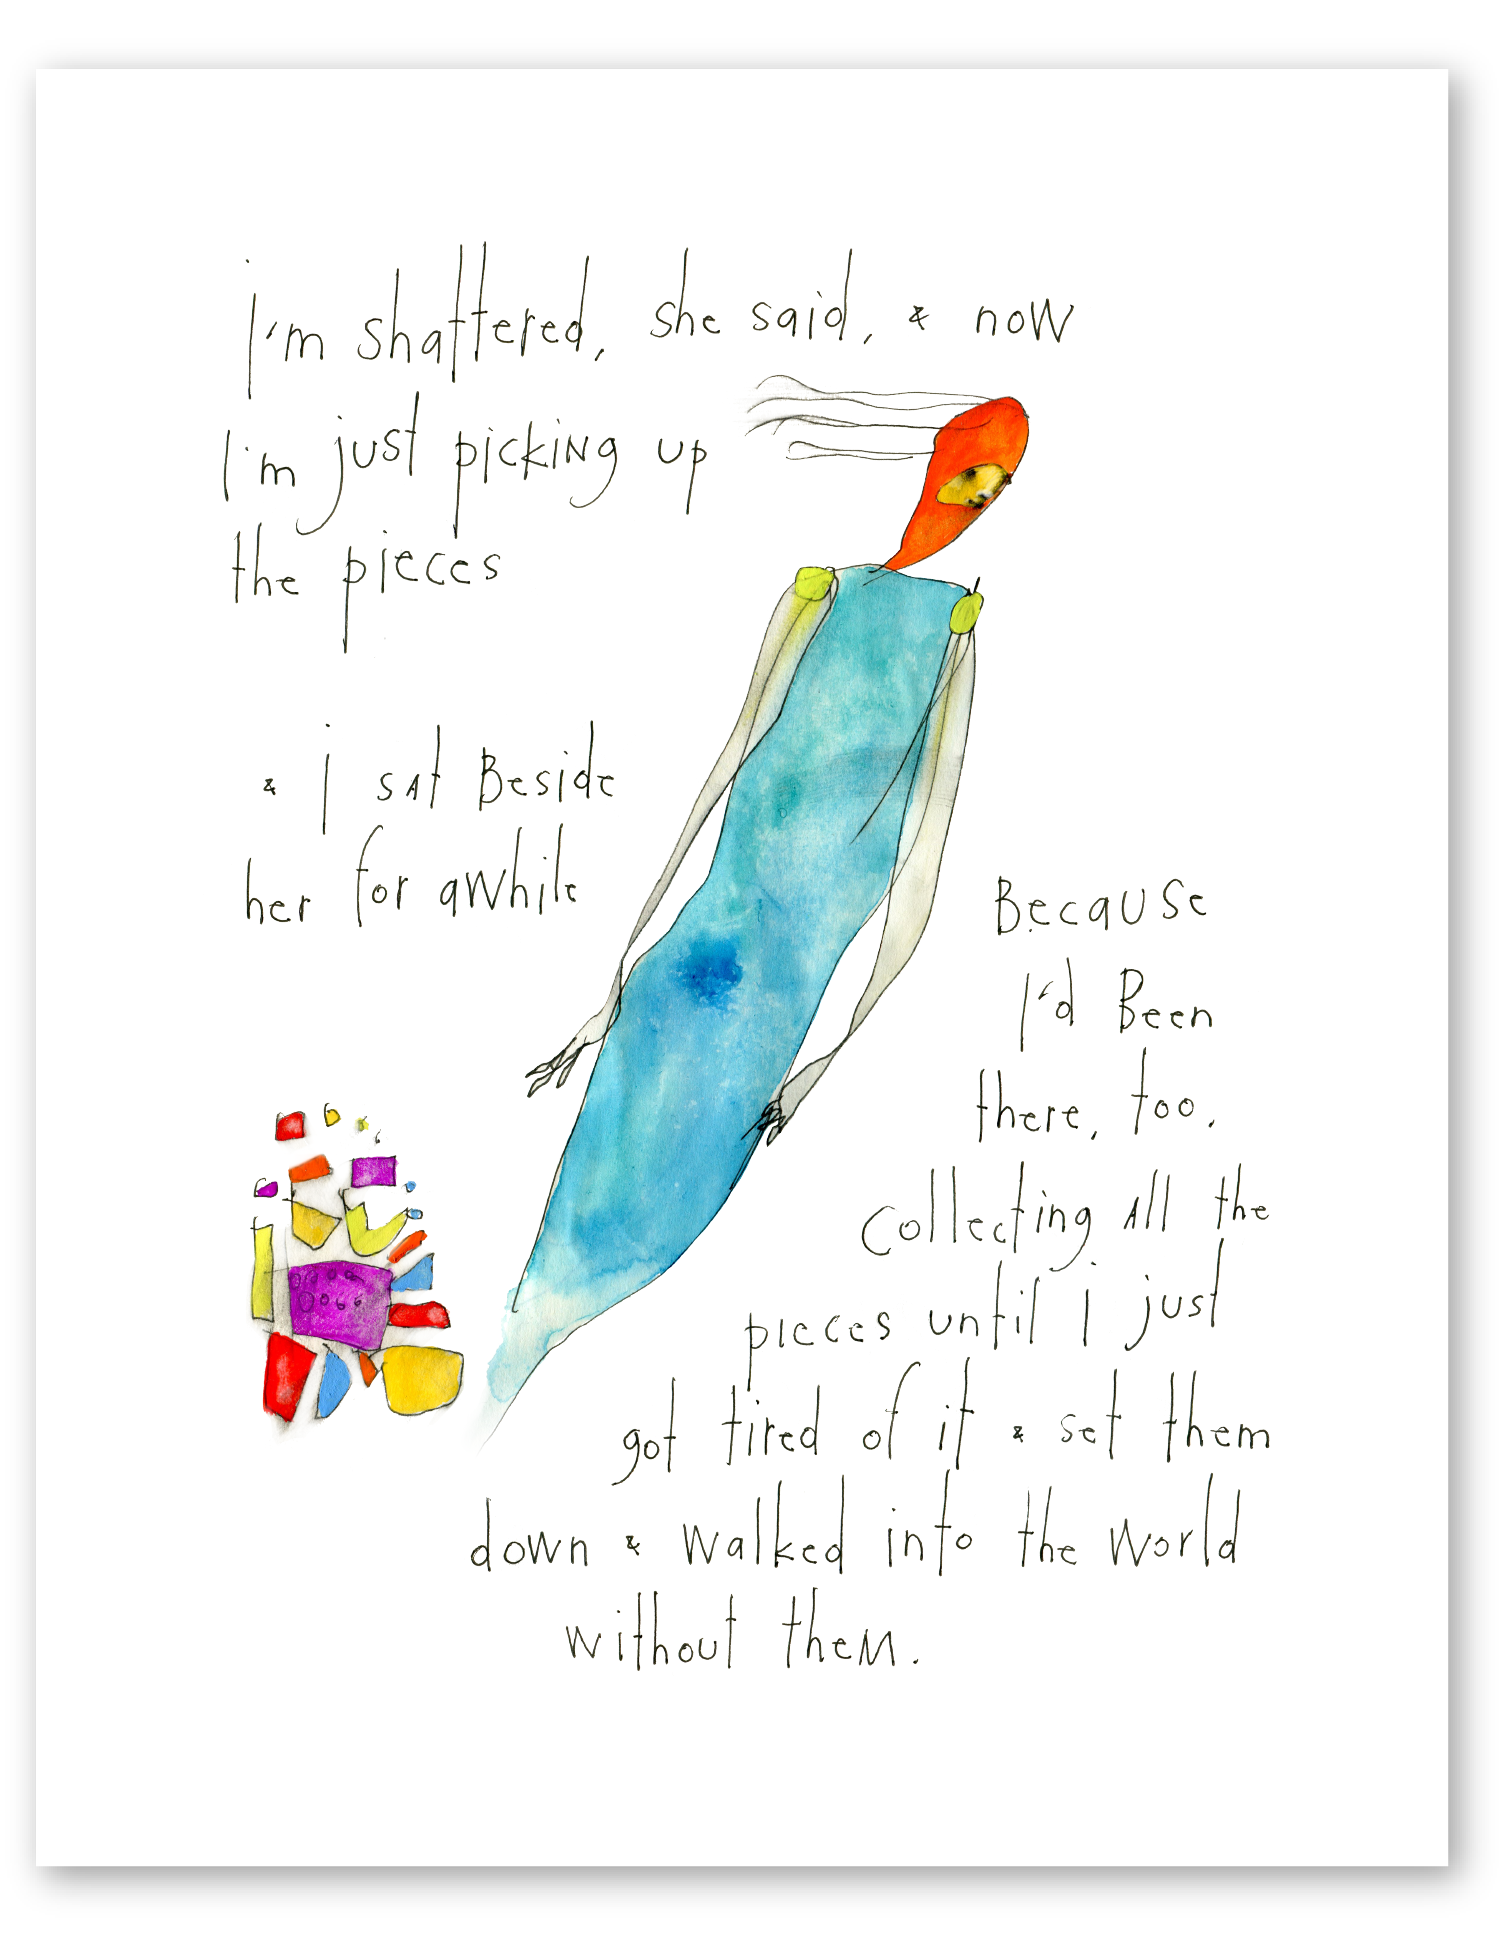 i'm shattered, she said, & now
I'm just picking up
the pieces
& i sat Beside
her for awhile
Because
I'd Been
there, too.
collecting all the
pieces until i just
got tired of it & set them
down & walked into the world
without them.